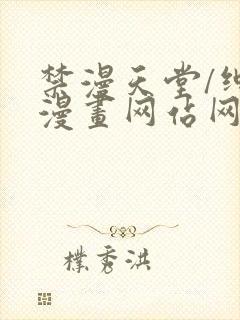 禁漫天堂/纯
漫畫网估网
樸秀洪